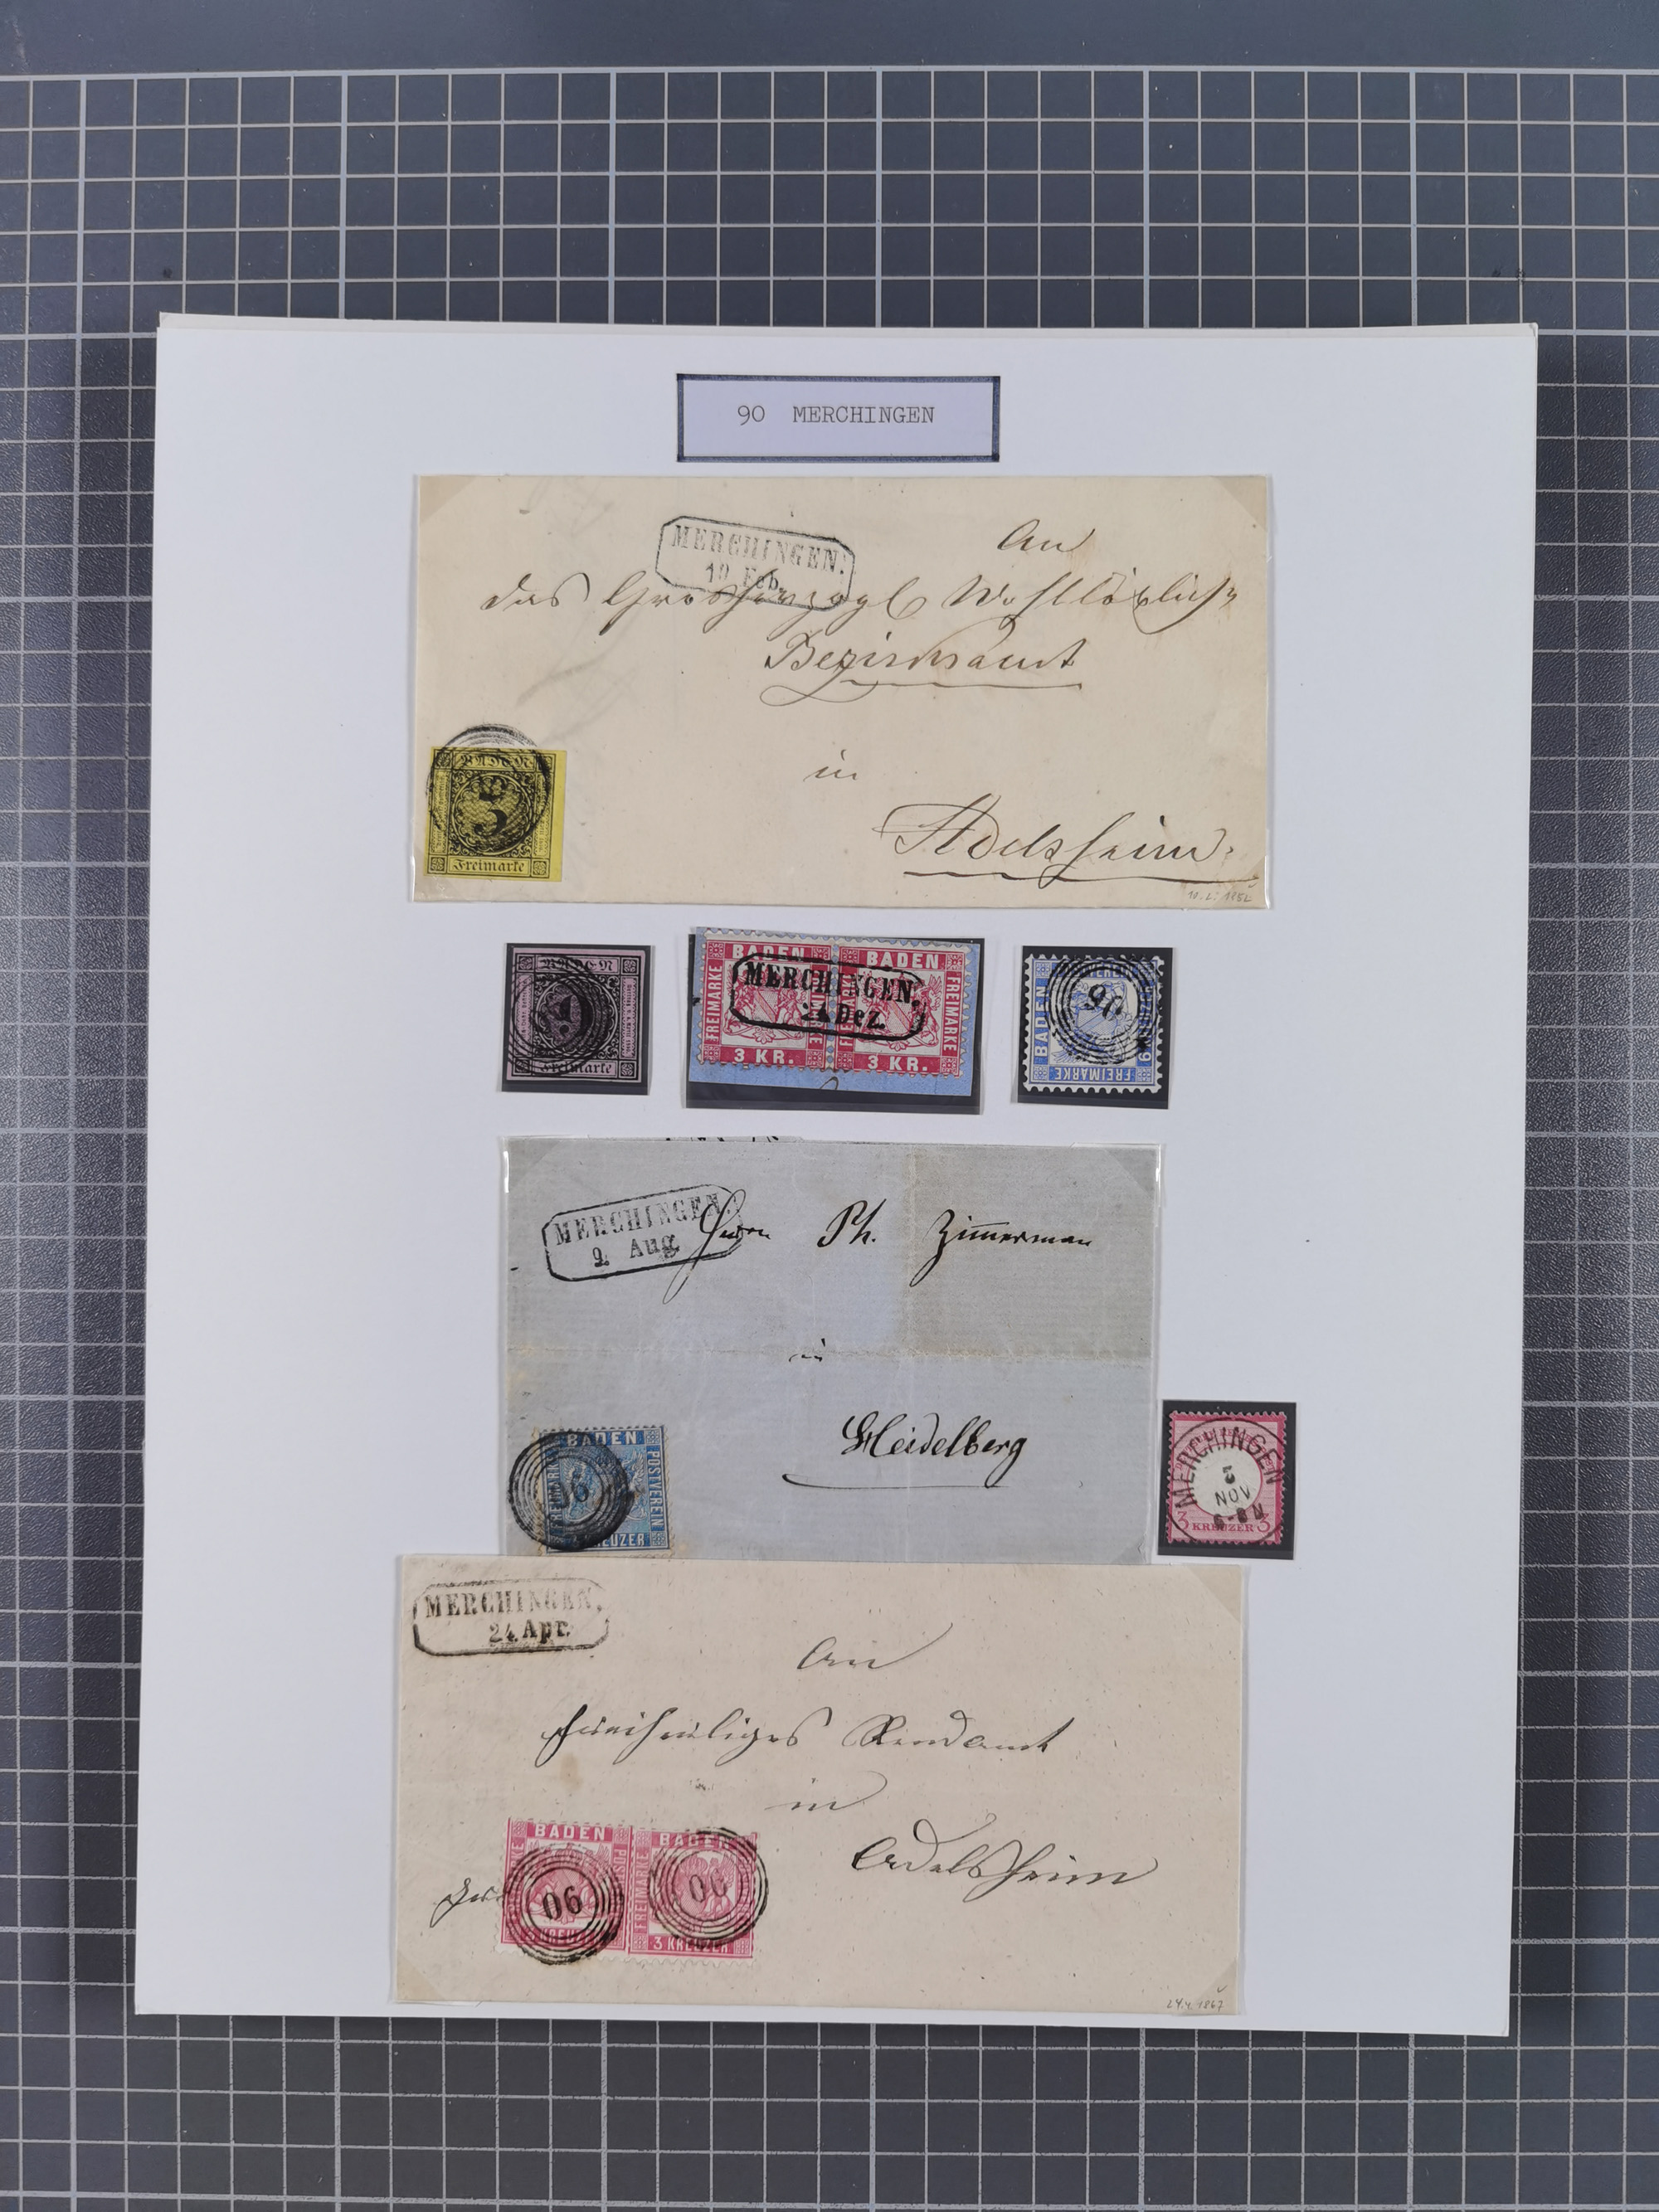 90 MERCHINGEN
MERCHINGEN.
10 Feb.
An
das Großherzogl Wohllöbliche
Bezirksamt
in
Adelsheim
BADEN
3
Freimarke
10.2.1852
BADEN
Freimarke
BADEN BADEN
FREIMARKE FREIMARKE
MERCHINGEN,
24 Dez.
3 KR. 3 KR.
BADEN
90
FREIMARKE
MERCHINGEN.
9. Aug.
Herrn Ph. Zimerman
in
Heidelberg
BADEN
FREIMARKE
POSTVEREIN
90
KREUZER
MERCHINGEN
2
NOV
3 KREUZER 3
MERCHINGEN,
24 Apr.
An
Rendamt
in
Adelsheim
BADEN BADEN
FREIMARKE
90 90
3 KREUZER 3 KREUZER
24.4.1867